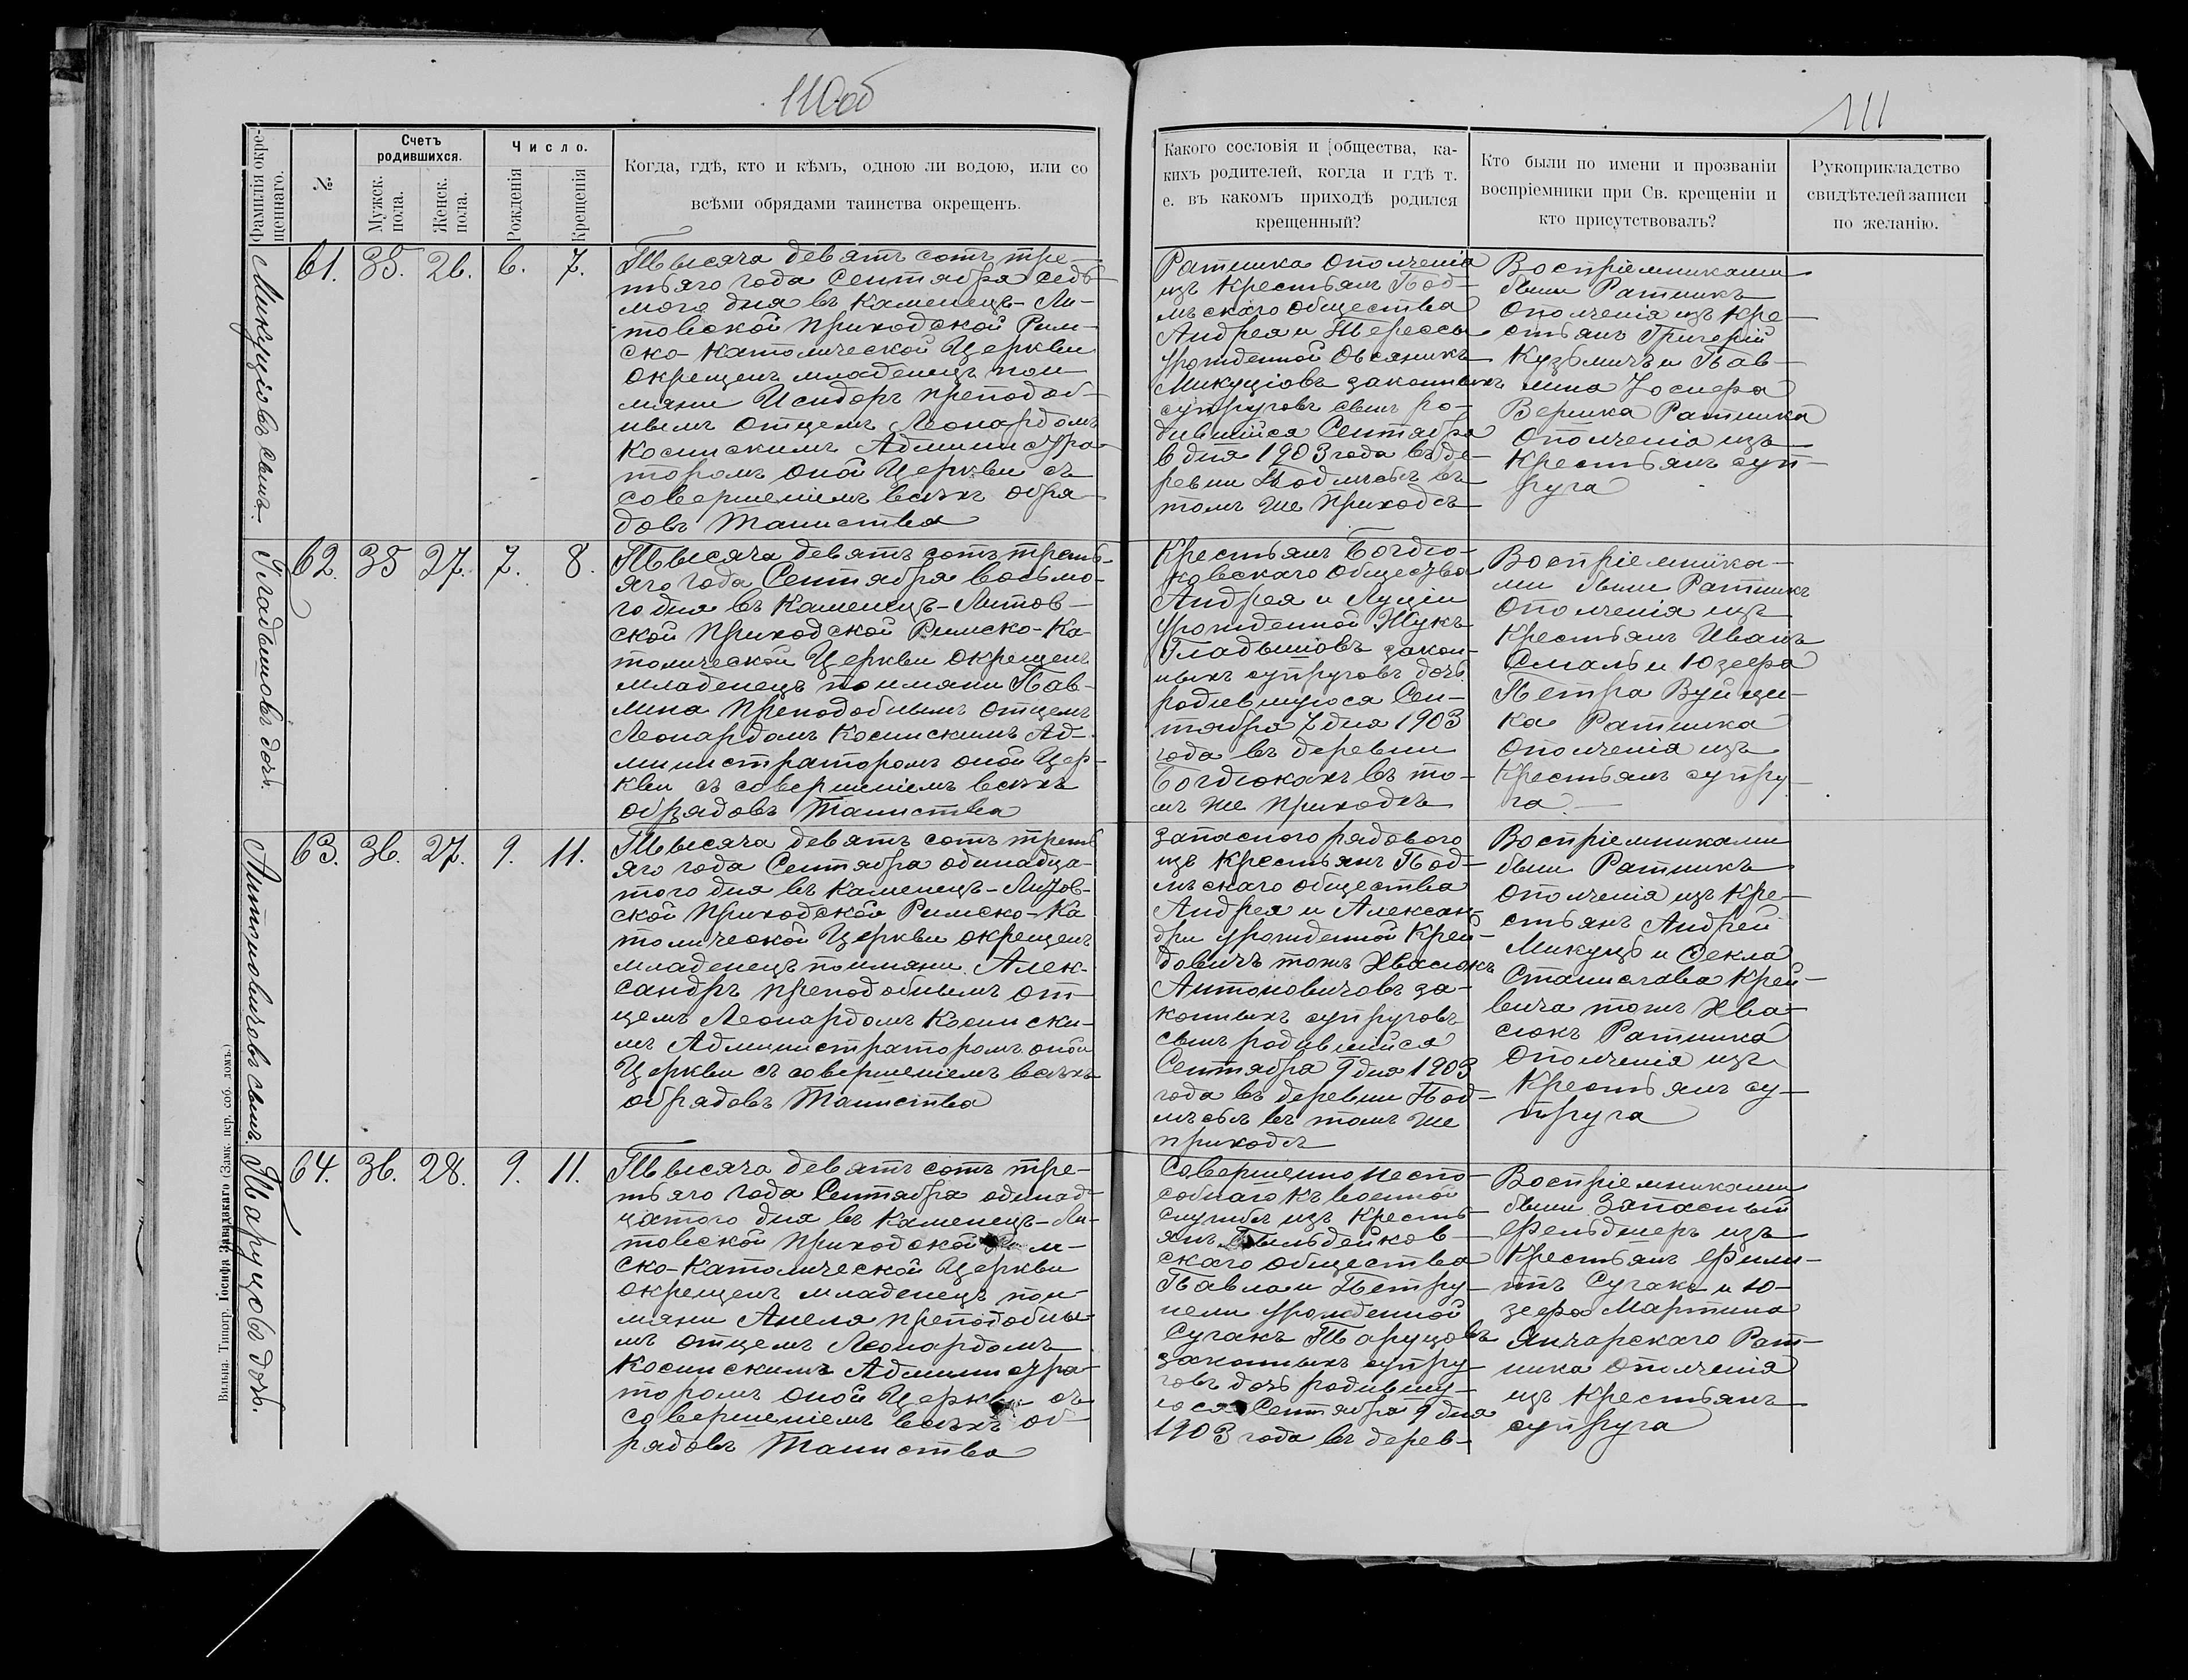 110об
111
Фамилія окре-
щеннаго.
№
Счетъ
родившихся.
Мужск.
пола.
Женск.
пола.
Число.
Рожденія
Крещенія
Когда, гдѣ, кто и кѣмъ, одною ли водою, или со
всѣми обрядами таинства окрещенъ.
Какого сословія и общества, ка-
кихъ родителей, когда и гдѣ т.
е. въ какомъ приходѣ родился
крещенный?
Кто были по имени и прозваніи
воспріемники при Св. крещеніи и
кто присутствовалъ?
Рукоприкладство
свидѣтелей записи
по желанію.
Микуціовъ сынъ.
61. 35. 26. 6. 7.
Тысяча девятъ сотъ тре-
тьяго года Сентября седь
мого дня въ Каменецъ-Ли-
товской приходской Рим-
ско-Католической Церкви
окрещенъ младенецъ пои
мяни Исидоръ преподоб-
нымъ отцемъ Леонардомъ
Косинскимъ Администра
торомъ оной Церкви съ
совершеніемъ всѣхъ обря-
довъ Таинства
Ратника ополченія
изъ крестьянъ Под-
мъскаго общества
Андрея и Терессы
урожденной Овсяникъ
Микуціовъ законныхъ
супруговъ сынъ ро-
дившійся Сентября
6 дня 1903 года въ де-
ревни Подлѣсьѣ въ
томъ же приходѣ
Воспріемниками
были Ратникъ
ополченія изъ кре-
стьянъ Григерій
Кузьмичъ и Пав-
лина Іосифа
Верника Ратника
ополченія изъ
крестьянъ суп-
руга
Гладышовъ дочь.
62. 35 27. 7. 8.
Тысяча девятъ сотъ треть-
яго года Сентября восьмо-
го дня въ Каменецъ-Литов-
ской приходской Римско-Ка-
толической Церкви окрещенъ
младенецъ поимяни Пав-
лина преподобнымъ отцемъ
Леонардомъ Косинскимъ Ад-
министраторомъ оной Цер-
кви съ совершеніемъ всѣхъ
обрядовъ Таинства
Крестьянъ Богдю-
ковскаго общества
Андрея и Луціи
урожденной Жукъ
Гладышовъ закон-
ныхъ супруговъ дочь
родившуюся Сен-
тября 7 дня 1903
года въ деревни
Богдюкахъ въ то-
мъ же приходѣ
Воспріемника-
ми были Ратникъ
ополченія изъ
крестьянъ Иванъ
Смаль и Юзефа
Петра Вуйци-
ка Ратника
ополченія изъ
крестьянъ супру-
га
Антоновичовъ сынъ.
63. 36. 27. 9. 11.
Тысяча девятъ сотъ треть
яго года Сентября одинадца-
того дня въ Каменецъ-Литов-
ской приходской Римско-Ка
толической Церкви окрещенъ
младенецъ поимяни Алек-
сандръ преподобнымъ от-
цемъ Леонардомъ Косински-
мъ Администраторомъ оной
Церкви съ совершеніемъ всѣхъ
обрядовъ Таинства
Запасного рядового
изъ крестьянъ Под-
мъскаго общества
Андрея и Алексан-
дри урожденной Крей-
довичъ тожъ Хвасюкъ
Антоновичовъ за-
конныхъ супруговъ
сынъ родившійся
Сентября 9 дня 1903
года въ деревни Под-
лѣсьѣ въ томъ же
приходѣ
Воспріемниками
были Ратникъ
ополченія изъ кре-
стьянъ Андрей
Микуць и Фекла
Станислава Крей-
вича тожъ Хва-
сюкъ Ратника
ополченія изъ
крестьянъ су-
пруга
Таруцовъ дочь.
64. 36. 28. 9. 11.
Тысяча девятъ сотъ тре-
тьяго года Сентября одинад-
цатого дня въ Каменецъ-Ли-
товской приходской Рим-
ско-Католической Церкви
окрещенъ младенецъ пои-
мяни Анеля преподобны-
мъ отцемъ Леонардомъ
Косинскимъ Администра-
торомъ оной Церкви съ
совершеніемъ всѣхъ об-
рядовъ Таинства
Совершенно неспо-
собнаго къ военной
службѣ изъ кресть-
янъ
скаго общества
Павла и Петру-
нели урожденной
Сугакъ Таруцовъ
законныхъ супру-
говъ дочь родившу-
юся Сентября 9 дня
1903 года въ дерев-
Воспріемниками
были Запасный
фельдшеръ изъ
крестьянъ Фили-
пъ Сугакъ и Ю-
зефа Мартина
Янчарскаго Рат-
ника ополченія
изъ крестьянъ
супруга
Вильна. Типогр. Іосифа Завадзкаго (Замк. пер. соб. домъ.)